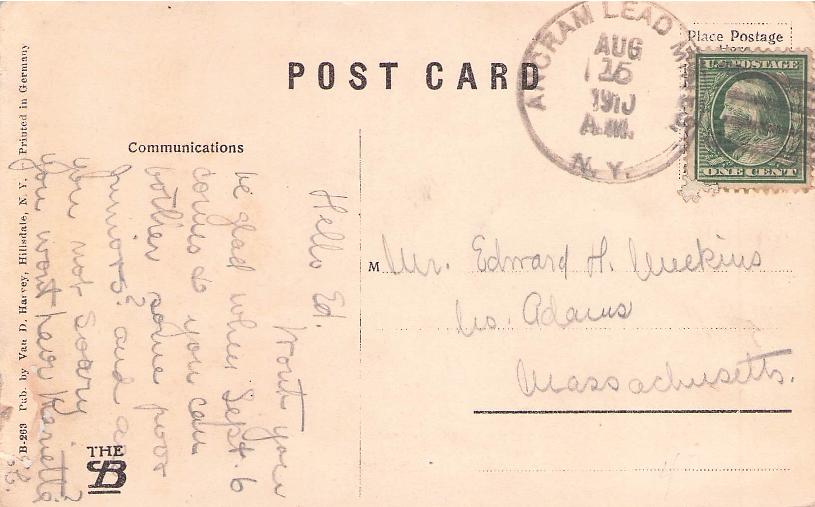 POST CARD
Place Postage
Here
ANCRAM LEAD MINES
AUG
15
1910
A.M.
N. Y.
U.S. POSTAGE
ONE CENT
Communications
Hello Ed.
Wont you
be glad when Sept. 6
comes so you can
bother some poor
Juniors? and are
you not sorry
you wont have Mariette?
M Mr. Edward H. Meekins
No. Adams
Massachusetts.
THE
B
B-263 Pub. by Van D. Harvey, Hillsdale, N. Y. Printed in Germany